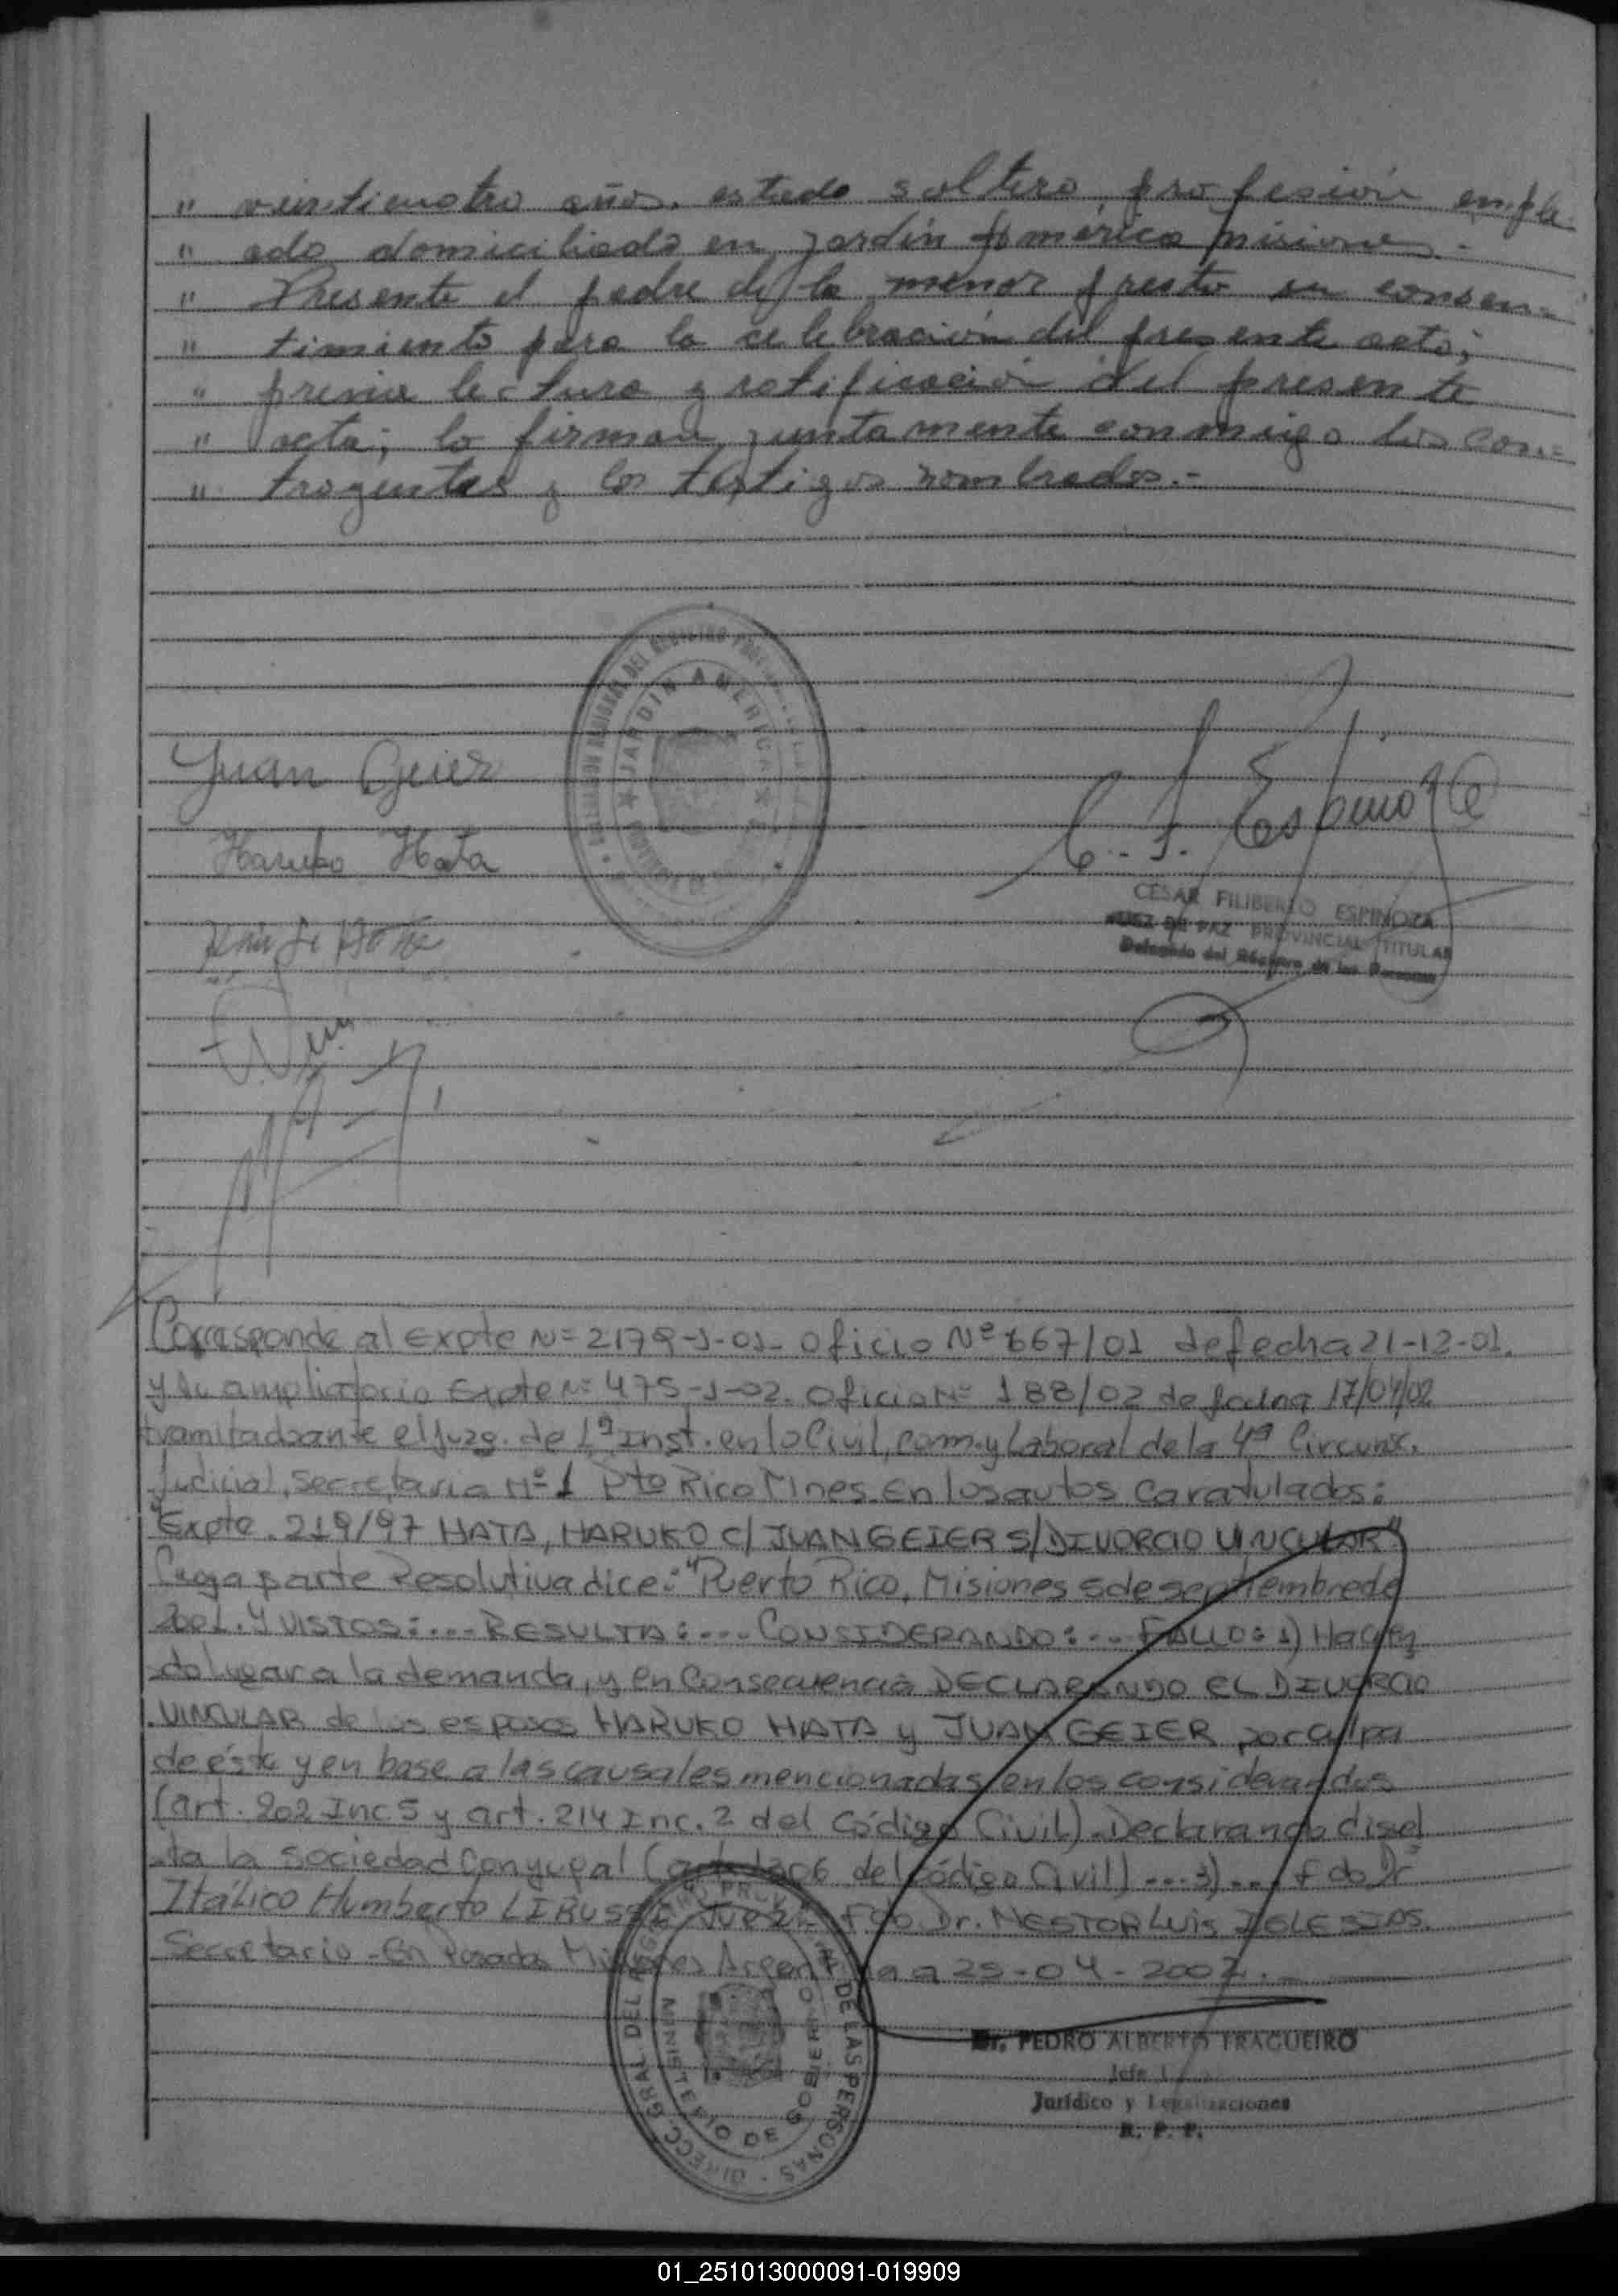 " veinticuatro años, estado soltero, profesión emple
" ado domiciliado en Jardín América Misiones.-
" Presente el padre de la menor presta su consen=
" timiento para la celebración del presente acto;
" previa lectura y ratificación del presente
" acta; lo firman juntamente conmigo los con=
" trayentes y los testigos nombrados.-
JARDIN AMERICA
Juan Geier
Haruko Hata
C. F. Espinoza
CESAR FILIBERTO ESPINOZA
JUEZ DE PAZ PROVINCIAL TITULAR
Delegado del Registro de las Personas
Corresponde al Expte Nº 2179-1-01- Oficio Nº 667/01 de fecha 21-12-01.
y su ampliatorio Expte Nº 475-1-02. Oficio Nº 188/02 de fecha 17/04/02
tramitadoante el Juzg. de 1ª Inst. en lo Civil, com. y Laboral de la 4ª Circunsc.
Judicial, Secretaria Nº 1 Pto Rico Mnes. En los autos Caratulados:
"Expte. 219/97 HATA, HARUKO C/ JUAN GEIER S/ DIVORCIO VINCULAR"
Cuya parte Resolutiva dice: "Puerto Rico, Misiones 5 de septiembre de
2001. Y VISTOS:... RESULTA:... CONSIDERANDO:... FALLO: 1) Hacien
do lugar a la demanda, y en Consecuencia DECLARANDO EL DIVORCIO
VINCULAR de los esposos HARUKO HATA y JUAN GEIER por culpa
de éste y en base a las causales mencionadas en los considerandos
(art. 202 Inc 5 y art. 214 Inc. 2 del Código Civil). Declarando disuel
ta la Sociedad Conyugal (art. 1306 del Código Civil) ... 3) ... Fdo Dr
Itálico Humberto LIBUSSI Juez - Fdo. Dr. NESTOR Luis IGLESIAS.
Secretario - En Posadas Misiones Argentina a 25-04-2002.
DIRECC. GRAL. DEL REGISTRO PROV. DE LAS PERSONAS
MINISTERIO DE GOBIERNO
Dr. PEDRO ALBERTO FRAGUEIRO
Jefe
Jurídico y Legalizaciones
R. P. P.
01_251013000091-019909